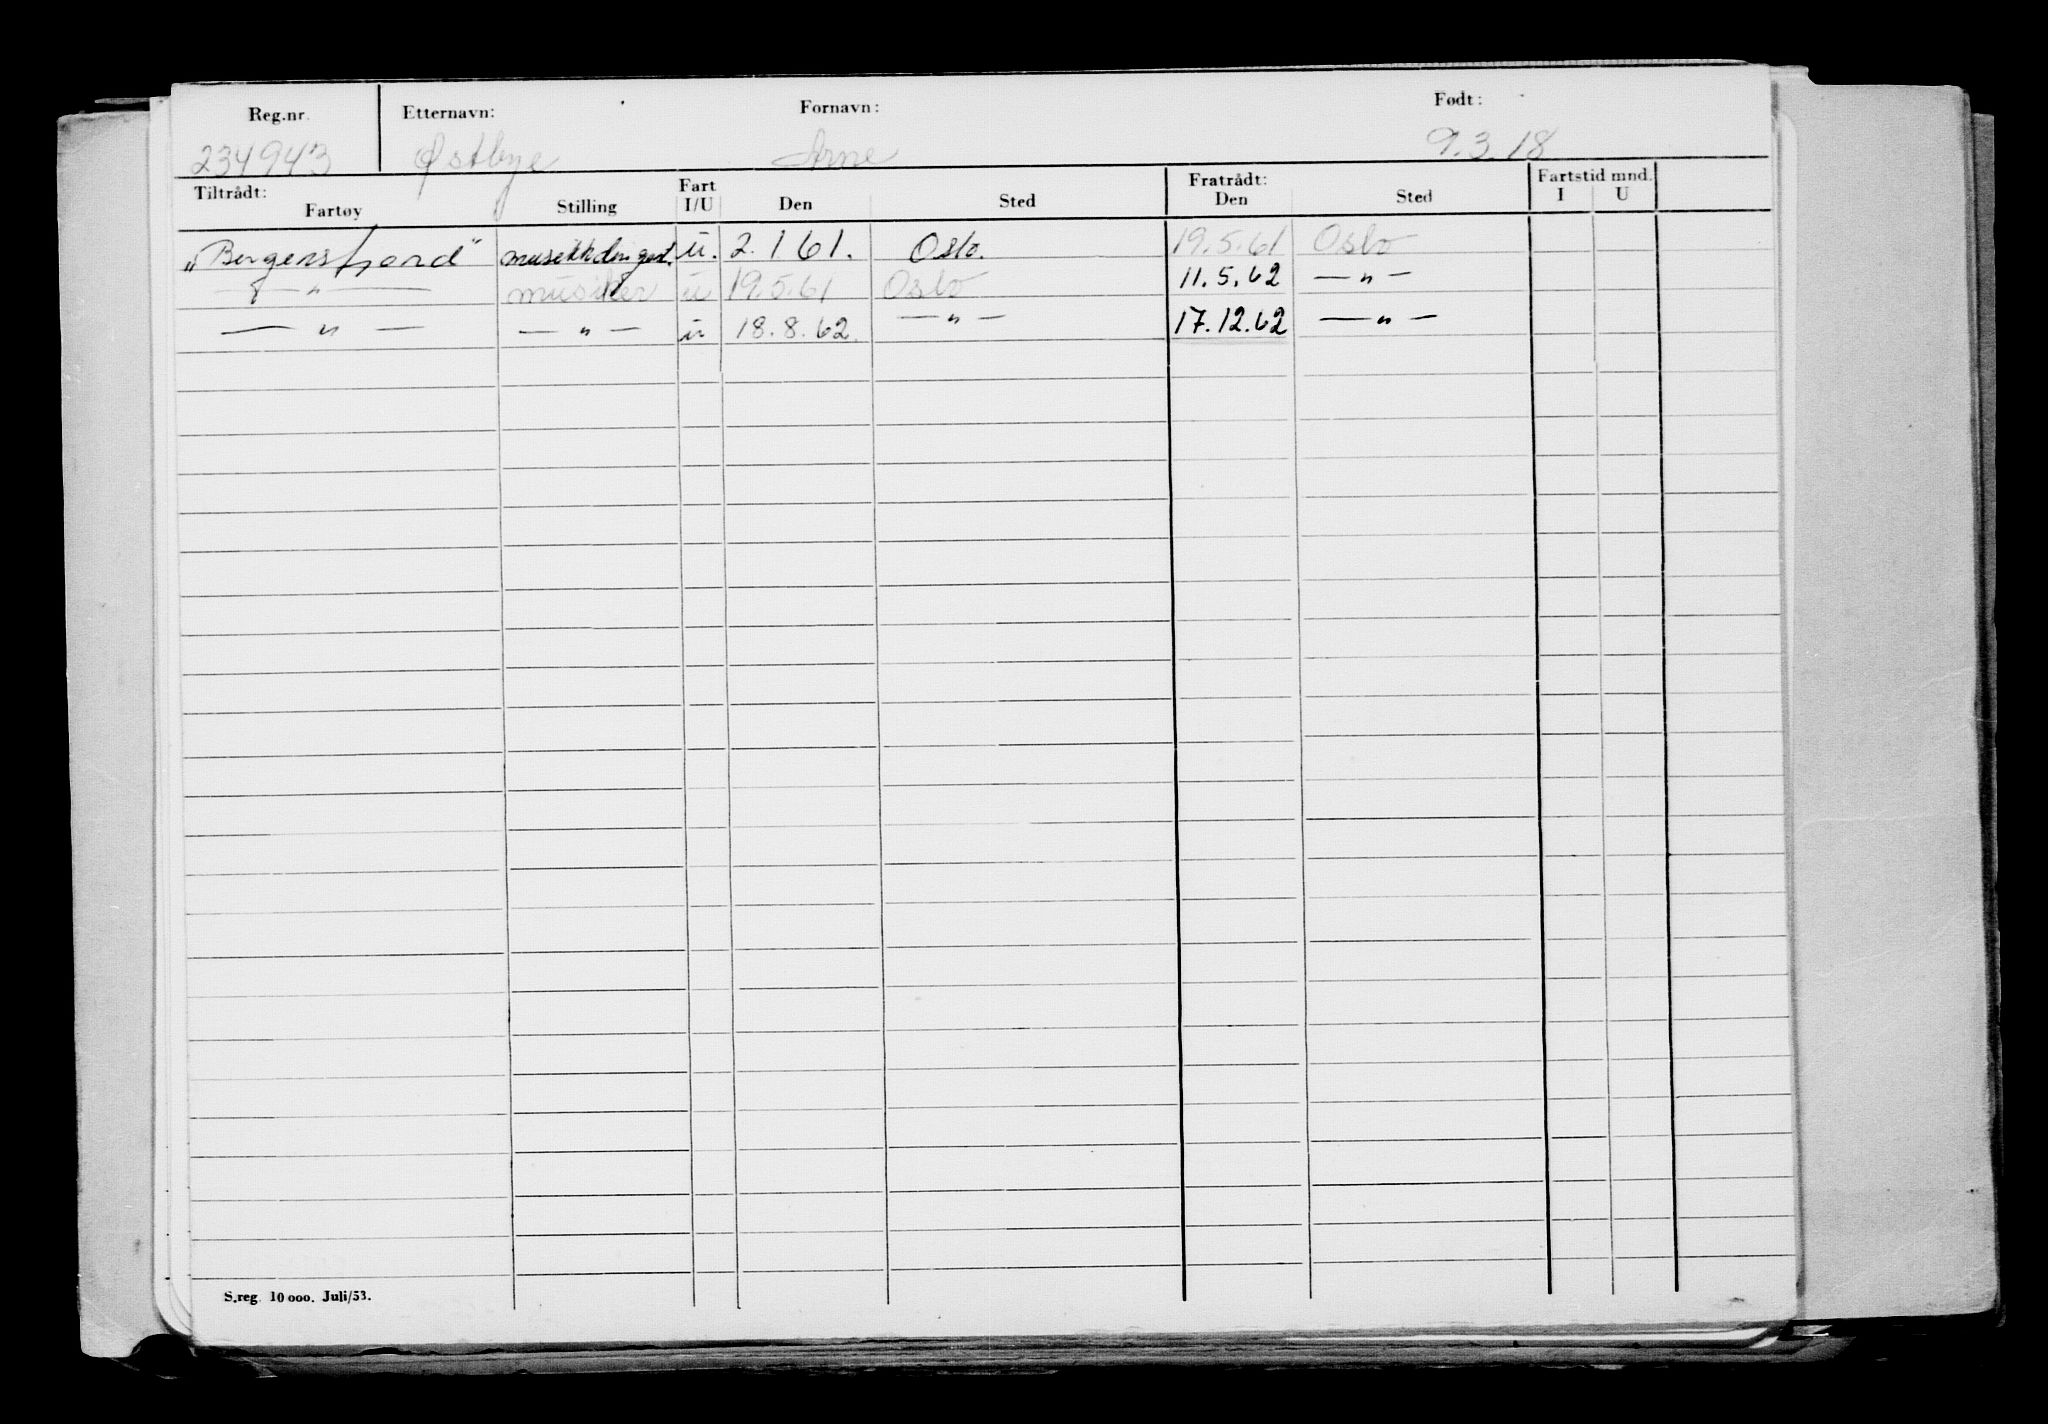 Reg.nr. Etternavn: Fornavn: Født:
234943 Østbye Arne 9.3.18
Tiltrådt: Fart Fratrådt: Fartstid mnd.
Fartøy Stilling I/U Den Sted Den Sted I U
„Bergensfjord" u. 2.1 61. Oslo. 19.5.61 Oslo
— " — musiker u 19.5.61 Oslo 11.5.62 — " —
— " — — " — u 18.8.62. — " — 17.12.62 — " —
S.reg. 10 000. Juli/53.